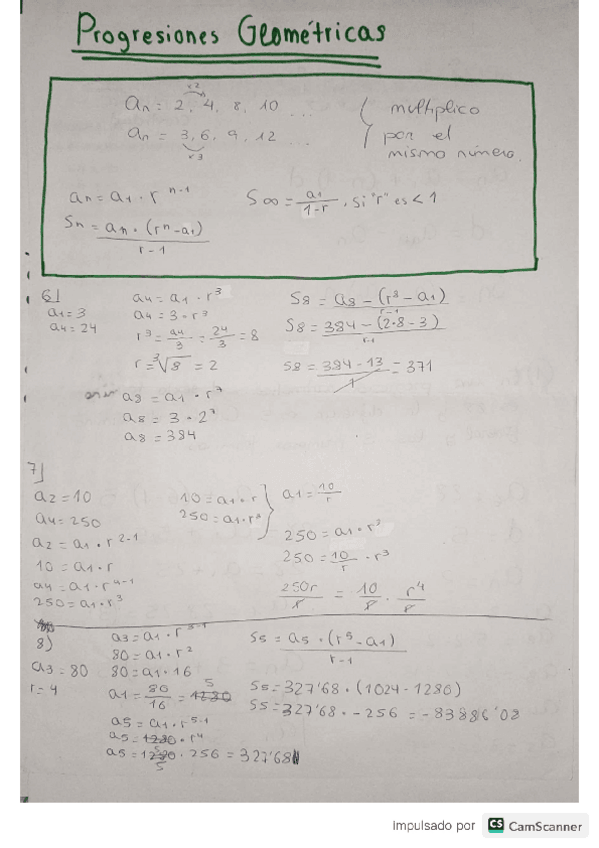 Progresiones Geométricas
x2
an = 2, 4, 8, 10 ...
an = 3, 6, 9, 12 ...
x3
multiplico
por el
mismo número.
an = a1 · r^n-1
S∞ = a1/1-r, si "r" es < 1
Sn = an · (r^n - a1)
r - 1
6]
a1 = 3
a4 = 24
a4 = a1 · r^3
a4 = 3 · r^3
r^3 = a4/3 = 24/3 = 8
r = ∛8 = 2
a8 = a1 · r^7
a8 = 3 · 2^7
a8 = 384
S8 = a8 - (r^8 - a1)
r-1
S8 = 384 - (2·8 - 3)
r-1
S8 = 384 - 13 = 371
1
7]
a2 = 10
a4 = 250
a2 = a1 · r^2-1
10 = a1 · r
a4 = a1 · r^4-1
250 = a1 · r^3
10 = a1 · r
250 = a1 · r^3
a1 = 10/r
250 = a1 · r^3
250 = 10/r · r^3
250r/r = 10/r · r^4/r
8)
a3 = 80
r = 4
a3 = a1 · r^3-1
80 = a1 · r^2
80 = a1 · 16
a1 = 80/16 = 1280 5
a5 = a1 · r^5-1
a5 = 1280 · r^4
a5 = 1280 · 256 = 327'68
5
S5 = a5 · (r^5 - a1)
r - 1
S5 = 327'68 · (1024 - 1280)
S5 = 327'68 · -256 = -83886'08
Impulsado por CS CamScanner